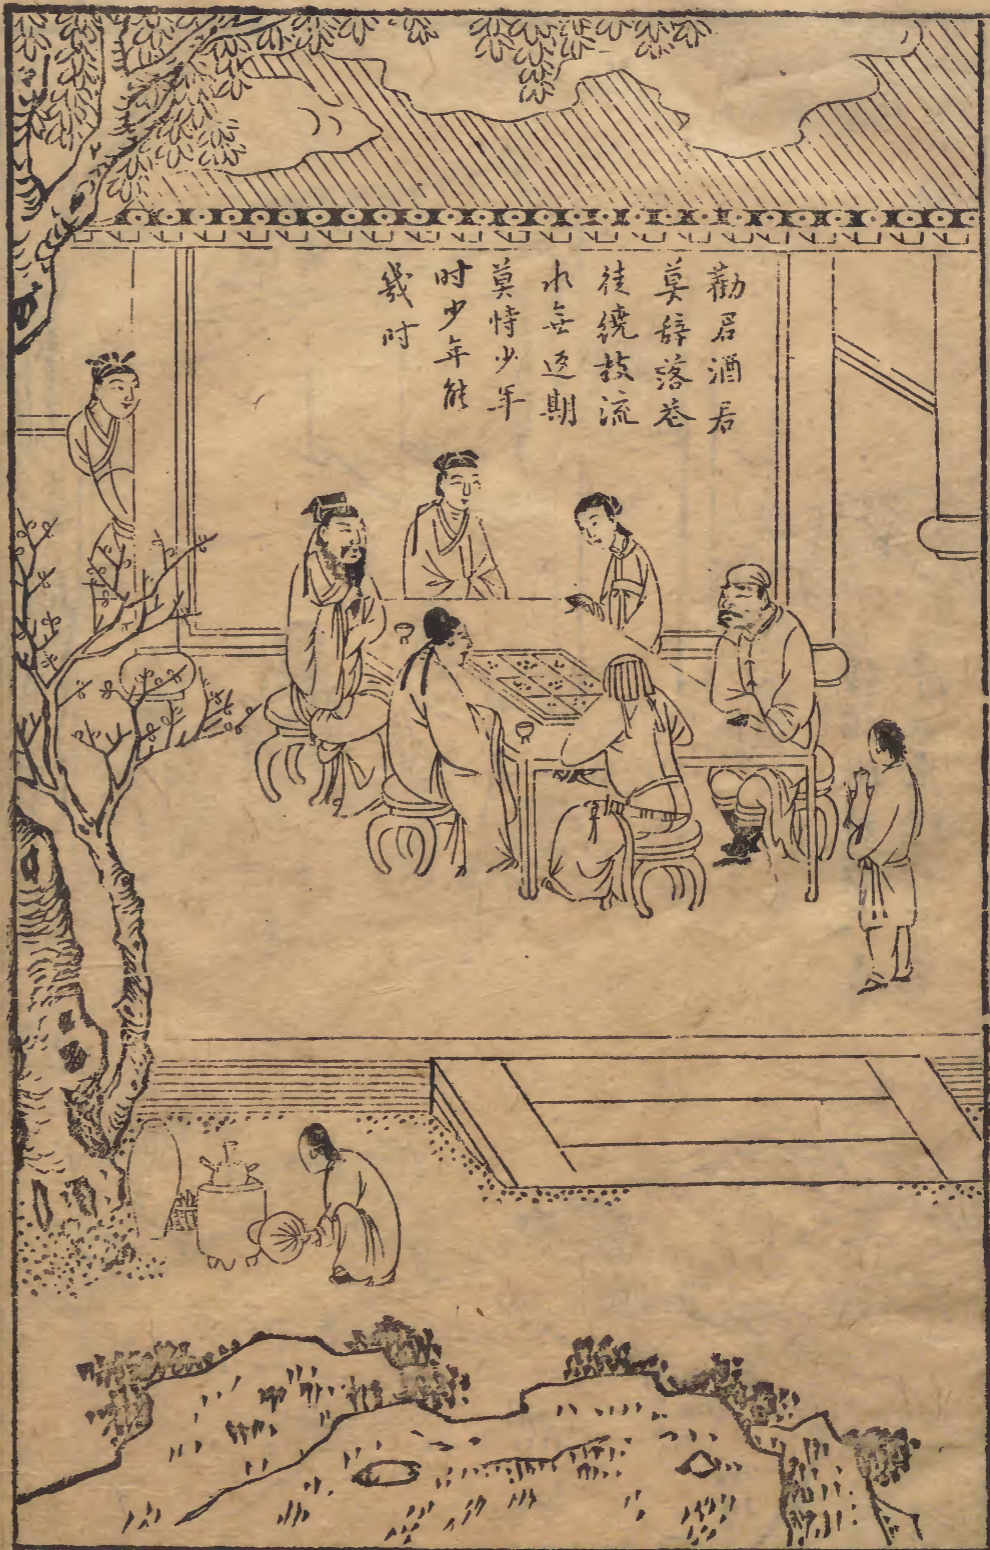 勸君酒君
莫辞落花
徒繞枝流
水無返期
莫恃少年
时少年能
幾时